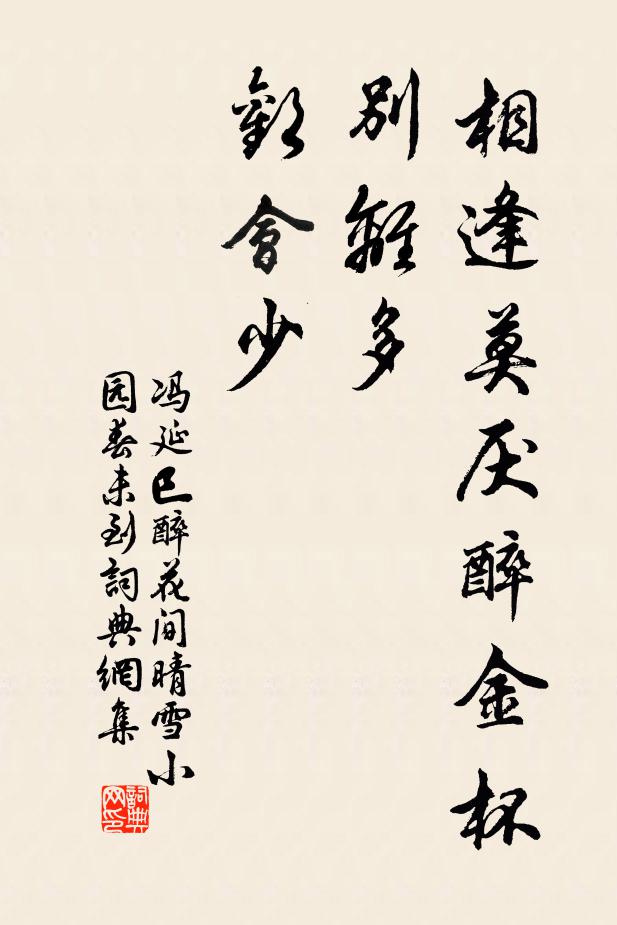 相逢莫厌醉金杯
别離多
歡會少
冯延巳醉花间晴雪小
园春未到詞典網集
詞典网印